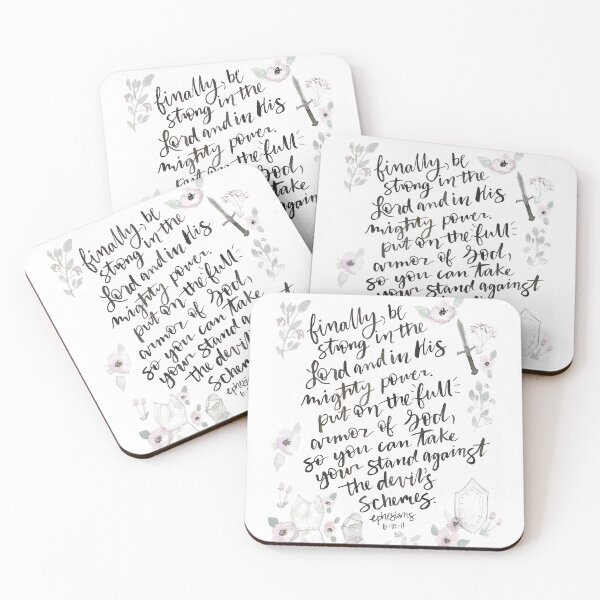 finally, be
strong in the
Lord and in His
mighty power.
put on the full
of God,
can take
against
finally, be
strong in the
Lord and in His
mighty power.
put on the full
armor of God,
so you can take
your stand against
finally, be
strong in the
Lord and in His
mighty power.
put on the full
armor of God,
so you can take
your stand against
the devil's
schemes
ephesians
finally, be
strong in the
Lord and in His
mighty power.
put on the full
armor of God,
so you can take
your stand against
the devil's
schemes.
ephesians
6:10-11